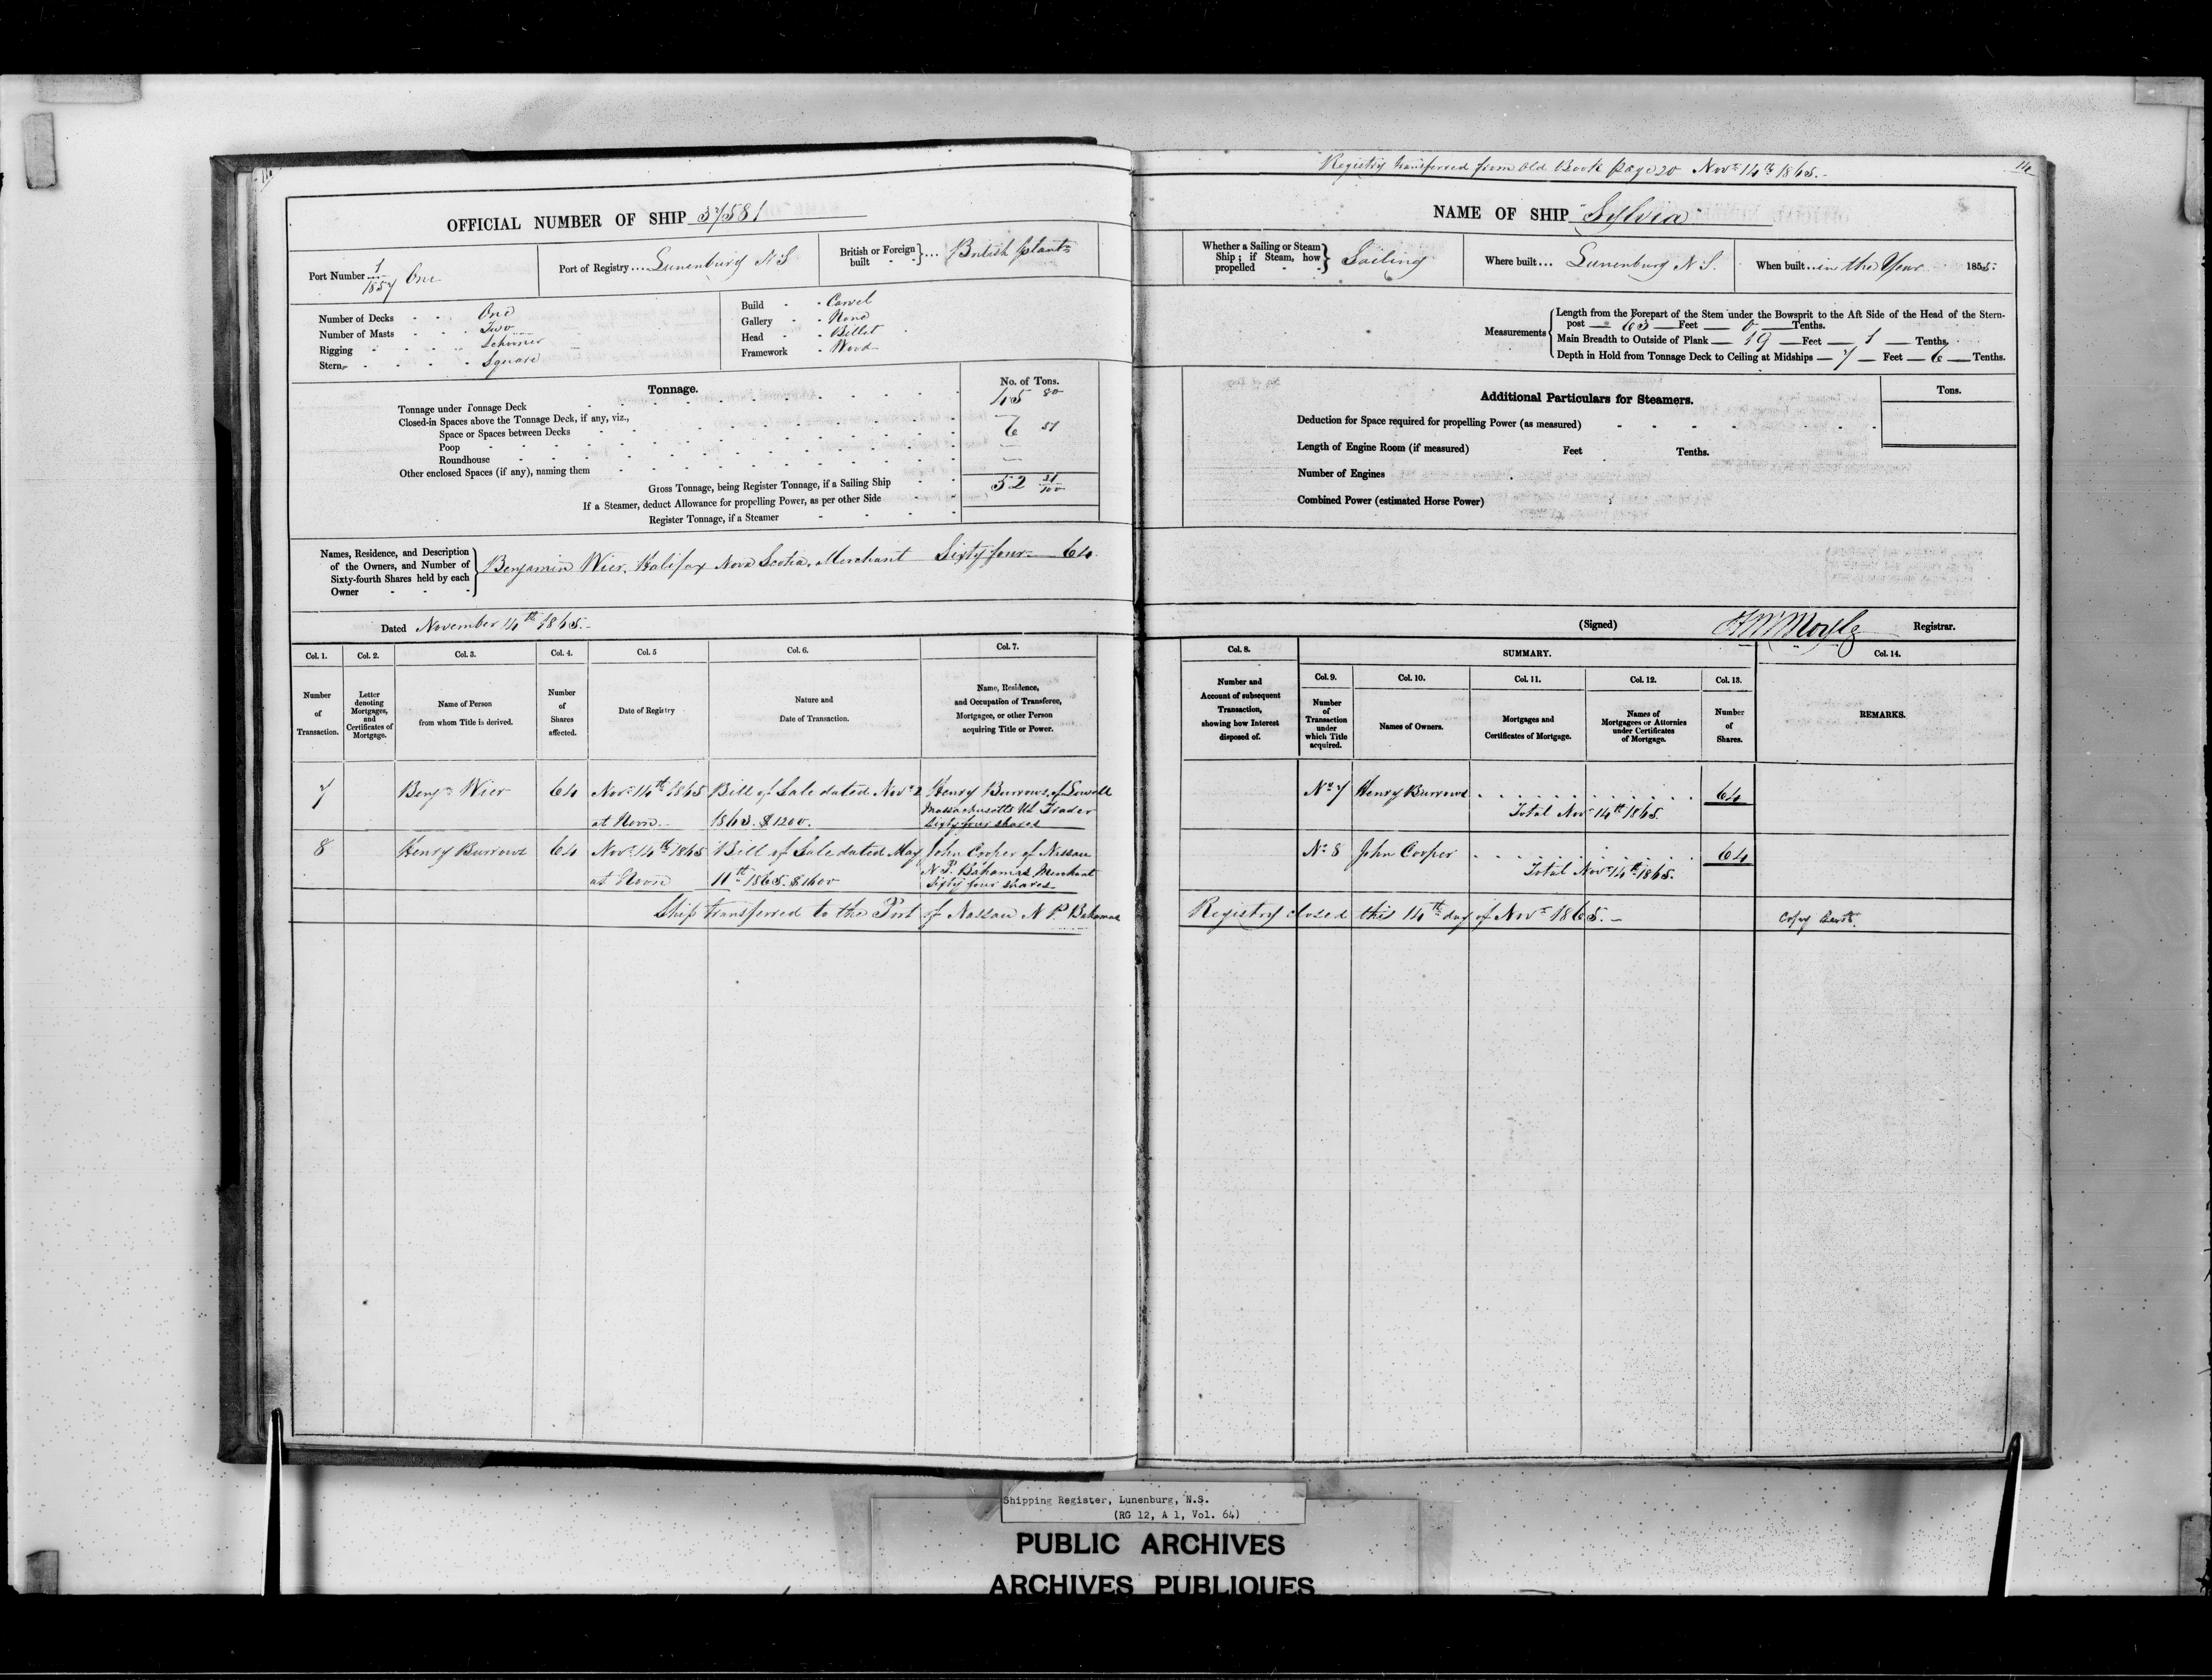 Registry transferred from Old Book page 20 Novr 14th 1865.-
14
OFFICIAL NUMBER OF SHIP 37581
Port Number 1/1857 One
Port of Registry... Lunenburg N S
British or Foreign built } ... British plants
Number of Decks One
Number of Masts Two
Rigging Schooner
Stern Square
Build Carvel
Gallery None
Head Billet
Framework Wood
Tonnage.
No. of Tons.
Tonnage under Tonnage Deck 45 80
Closed-in Spaces above the Tonnage Deck, if any, viz.,
Space or Spaces between Decks
Poop 6 51
Roundhouse
Other enclosed Spaces (if any), naming them
Gross Tonnage, being Register Tonnage, if a Sailing Ship 52 31/100
If a Steamer, deduct Allowance for propelling Power, as per other Side
Register Tonnage, if a Steamer
Names, Residence, and Description of the Owners, and Number of Sixty-fourth Shares held by each Owner } Benjamin Wier, Halifax Nova Scotia, Merchant Sixty four 64
Dated November 14th 1865.-
Col. 1. Col. 2. Col. 3. Col. 4. Col. 5 Col. 6. Col. 7.
Number of Transaction.
Letter denoting Mortgages, and Certificates of Mortgage.
Name of Person from whom Title is derived.
Number of Shares affected.
Date of Registry
Nature and Date of Transaction.
Name, Residence, and Occupation of Transferee, Mortgagee, or other Person acquiring Title or Power.
7 Benjn Wier 64 Novr 14th 1865 Bill of Sale dated Novr 2 Henry Burrows of Lowell
at Noon 1863. $1200. Massachusetts US Trader
Sixty four shares
8 Henry Burrows 64 Novr 14th 1865 Bill of Sale dated May John Cooper of Nassau
at Noon 11th 1865. $1600 N P. Bahamas Merchant
Sixty four shares
Ship transferred to the Port of Nassau N P. Bahamas
NAME OF SHIP "Sylvia"
Whether a Sailing or Steam Ship; if Steam, how propelled } Sailing
Where built... Lunenburg N S.
When built.. in the Year 1855.
Measurements
Length from the Forepart of the Stem under the Bowsprit to the Aft Side of the Head of the Stern-
post — 63 — Feet — 0 — Tenths.
Main Breadth to Outside of Plank — 19 — Feet — 1 — Tenths.
Depth in Hold from Tonnage Deck to Ceiling at Midships — 7 — Feet — 6 — Tenths.
Additional Particulars for Steamers.
Tons.
Deduction for Space required for propelling Power (as measured)
Length of Engine Room (if measured) Feet Tenths.
Number of Engines
Combined Power (estimated Horse Power)
(Signed) Moyle Registrar.
Col. 8. SUMMARY. Col. 14.
Col. 9. Col. 10. Col. 11. Col. 12. Col. 13.
Number and Account of subsequent Transaction, showing how Interest disposed of.
Number of Transaction under which Title acquired.
Names of Owners.
Mortgages and Certificates of Mortgage.
Names of Mortgagees or Attornies under Certificates of Mortgage.
Number of Shares.
REMARKS.
No 7 Henry Burrows 64
Total Novr 14th 1865.
No 8 John Cooper 64
Total Novr 14th 1865.
Registry closed this 14th day of Novr 1865.- Copy
Shipping Register, Lunenburg, N.S.
(RG 12, A 1, Vol. 64)
PUBLIC ARCHIVES
ARCHIVES PUBLIQUES